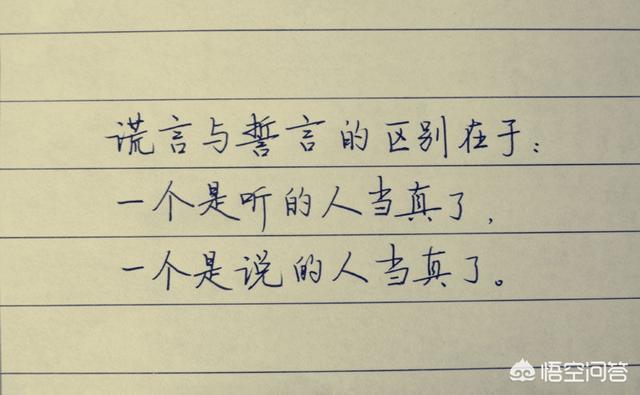 谎言与誓言的区别在于：
一个是听的人当真了，
一个是说的人当真了。
悟空问答